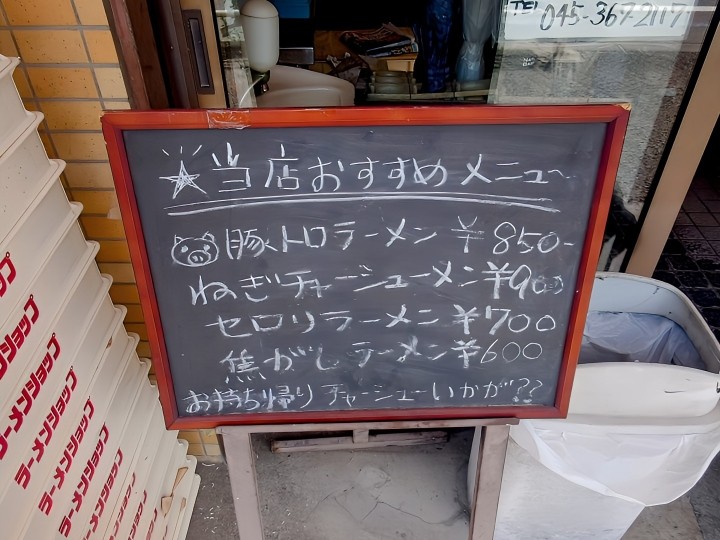 TEL 045-367-2117
☆当店おすすめメニュー
豚トロラーメン ¥850-
ねぎチャーシューメン ¥900
セロリラーメン ¥700
焦がしラーメン ¥600
お持ち帰りチャーシューいかが??
ラーメンショップ
ラーメンショップ
ラーメンショップ
ラーメンショップ
ラーメンショップ